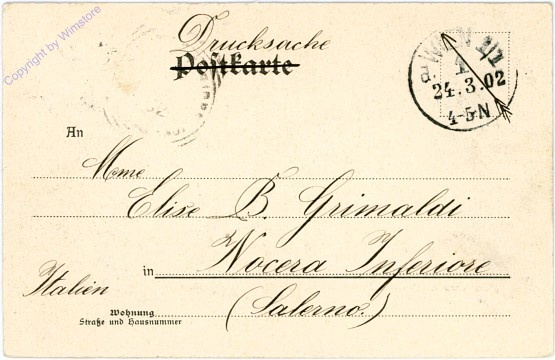 Copyright by Wimstore
Drucksache
Postkarte
WIEN 1/1
1
24.3.02
4-5N
An
Mme
Elise B. Grimaldi
in Nocera Inferiore
Italien
(Salerno.)
Wohnung
Straße und Hausnummer